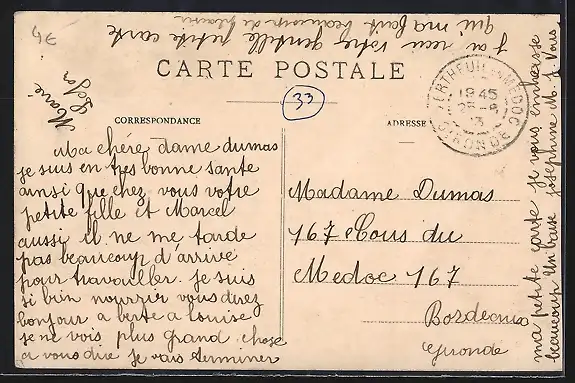 CARTE POSTALE
33
CORRESPONDANCE
ADRESSE
Ma chére dame dumas
je suis en tres bonne santé
ainsi que chez vous votre
petite fille et Marcel
aussi il ne me tarde
pas beaucoup d'arrivé
pour travailler. je suis
si bien nourrir vous direz
bonjour a berte a louise
je ne vois plus grand chose
a vous dire je vais terminer
ma petite carte je vous embrasse
beaucoup un baisé josephine M. J. Vous
Madame Dumas
167 Cous du
Medoc 167
Bordeaux
Gironde
BERTHEUIL-EN-MEDOC
1845
25-8
13
GIRONDE
J'ai recu votre gentille petite carte
qui ma fait beaucoup de plaisir
Marie